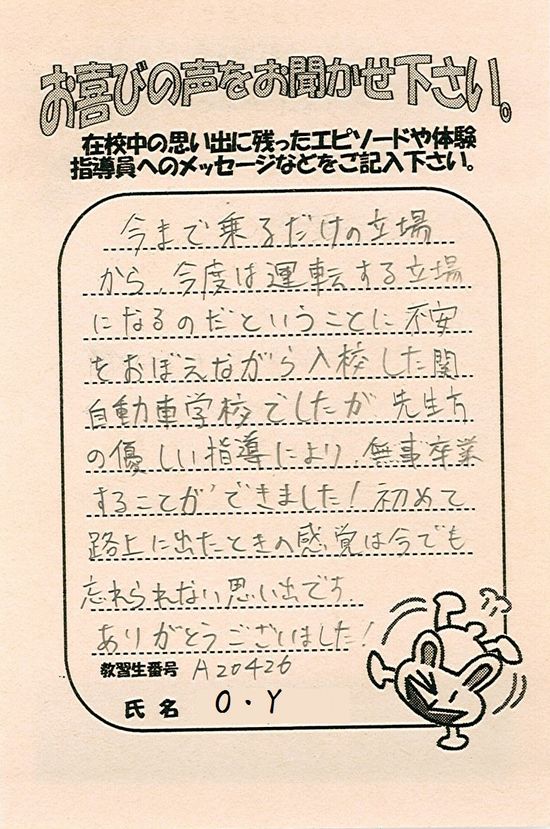 お喜びの声をお聞かせ下さい。
在校中の思い出に残ったエピソードや体験
指導員へのメッセージなどをご記入下さい。
今まで乗るだけの立場
から、今度は運転する立場
になるのだということに不安
をおぼえながら入校した関
自動車学校でしたが先生方
の優しい指導により、無事卒業
することができました！初めて
路上に出たときの感覚は今でも
忘れられない思い出です。
ありがとうございました！
教習生番号 A20426
氏名 O・Y